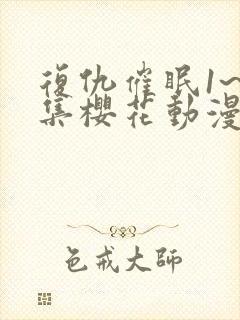 復仇催眠1~
集櫻花動漫
色戒大師